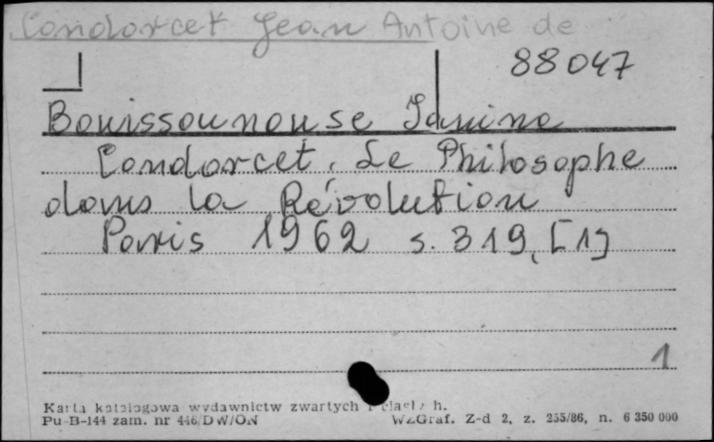 Condorcet Jean Antoine de
88047
Bouissounouse Janine
Condorcet. Le Philosophe
dans la Révolution
Paris 1962 s. 319, [1]
1
Karta katalogowa wydawnictw zwartych h.
Pu-B-144 zam. nr 446/DW/ON WZGraf. Z-d 2, z. 255/86, n. 6 350 000